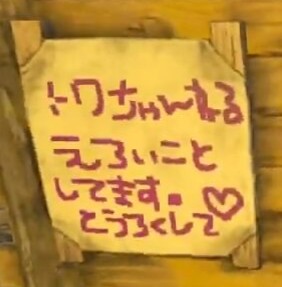 トワちゃんねる
えろいこと
してます。♡
とうろくして